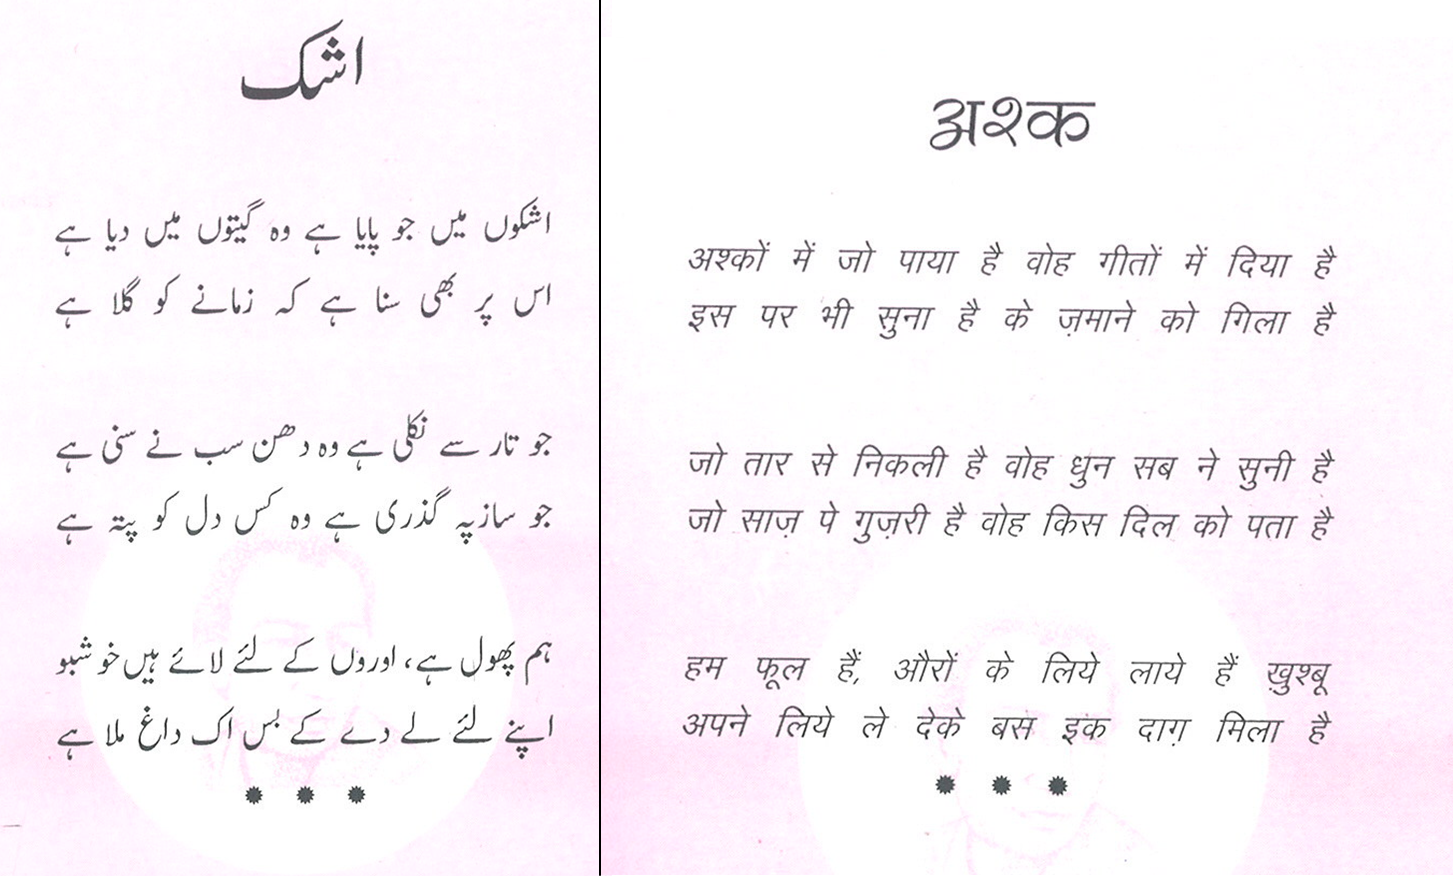 اشک
اشکوں میں جو پایا ہے وہ گیتوں میں دیا ہے
اس پر بھی سنا ہے کہ زمانے کو گلا ہے
جو تار سے نکلی ہے وہ دھن سب نے سنی ہے
جو ساز پہ گذری ہے وہ کس دل کو پتہ ہے
ہم پھول ہے، اوروں کے لئے لائے ہیں خوشبو
اپنے لئے لے دے کے بس اک داغ ملا ہے
अश्क
अश्कों में जो पाया है वोह गीतों में दिया है
इस पर भी सुना है के ज़माने को गिला है
जो तार से निकली है वोह धुन सब ने सुनी है
जो साज़ पे गुज़री है वोह किस दिल को पता है
हम फूल हैं, औरों के लिये लाये हैं ख़ुश्बू
अपने लिये ले देके बस इक दाग़ मिला है